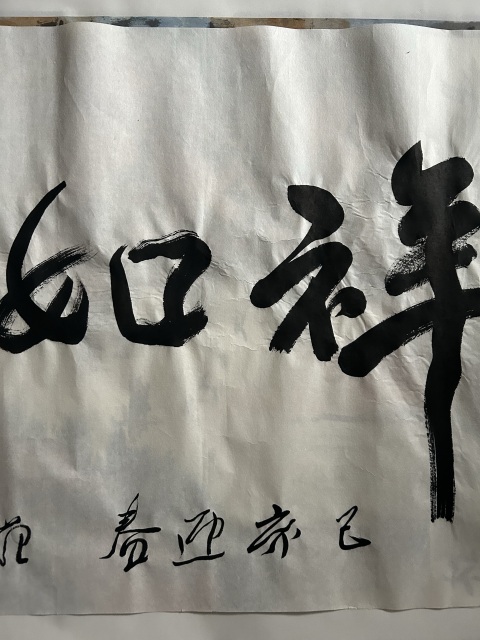 祥如
己亥迎春